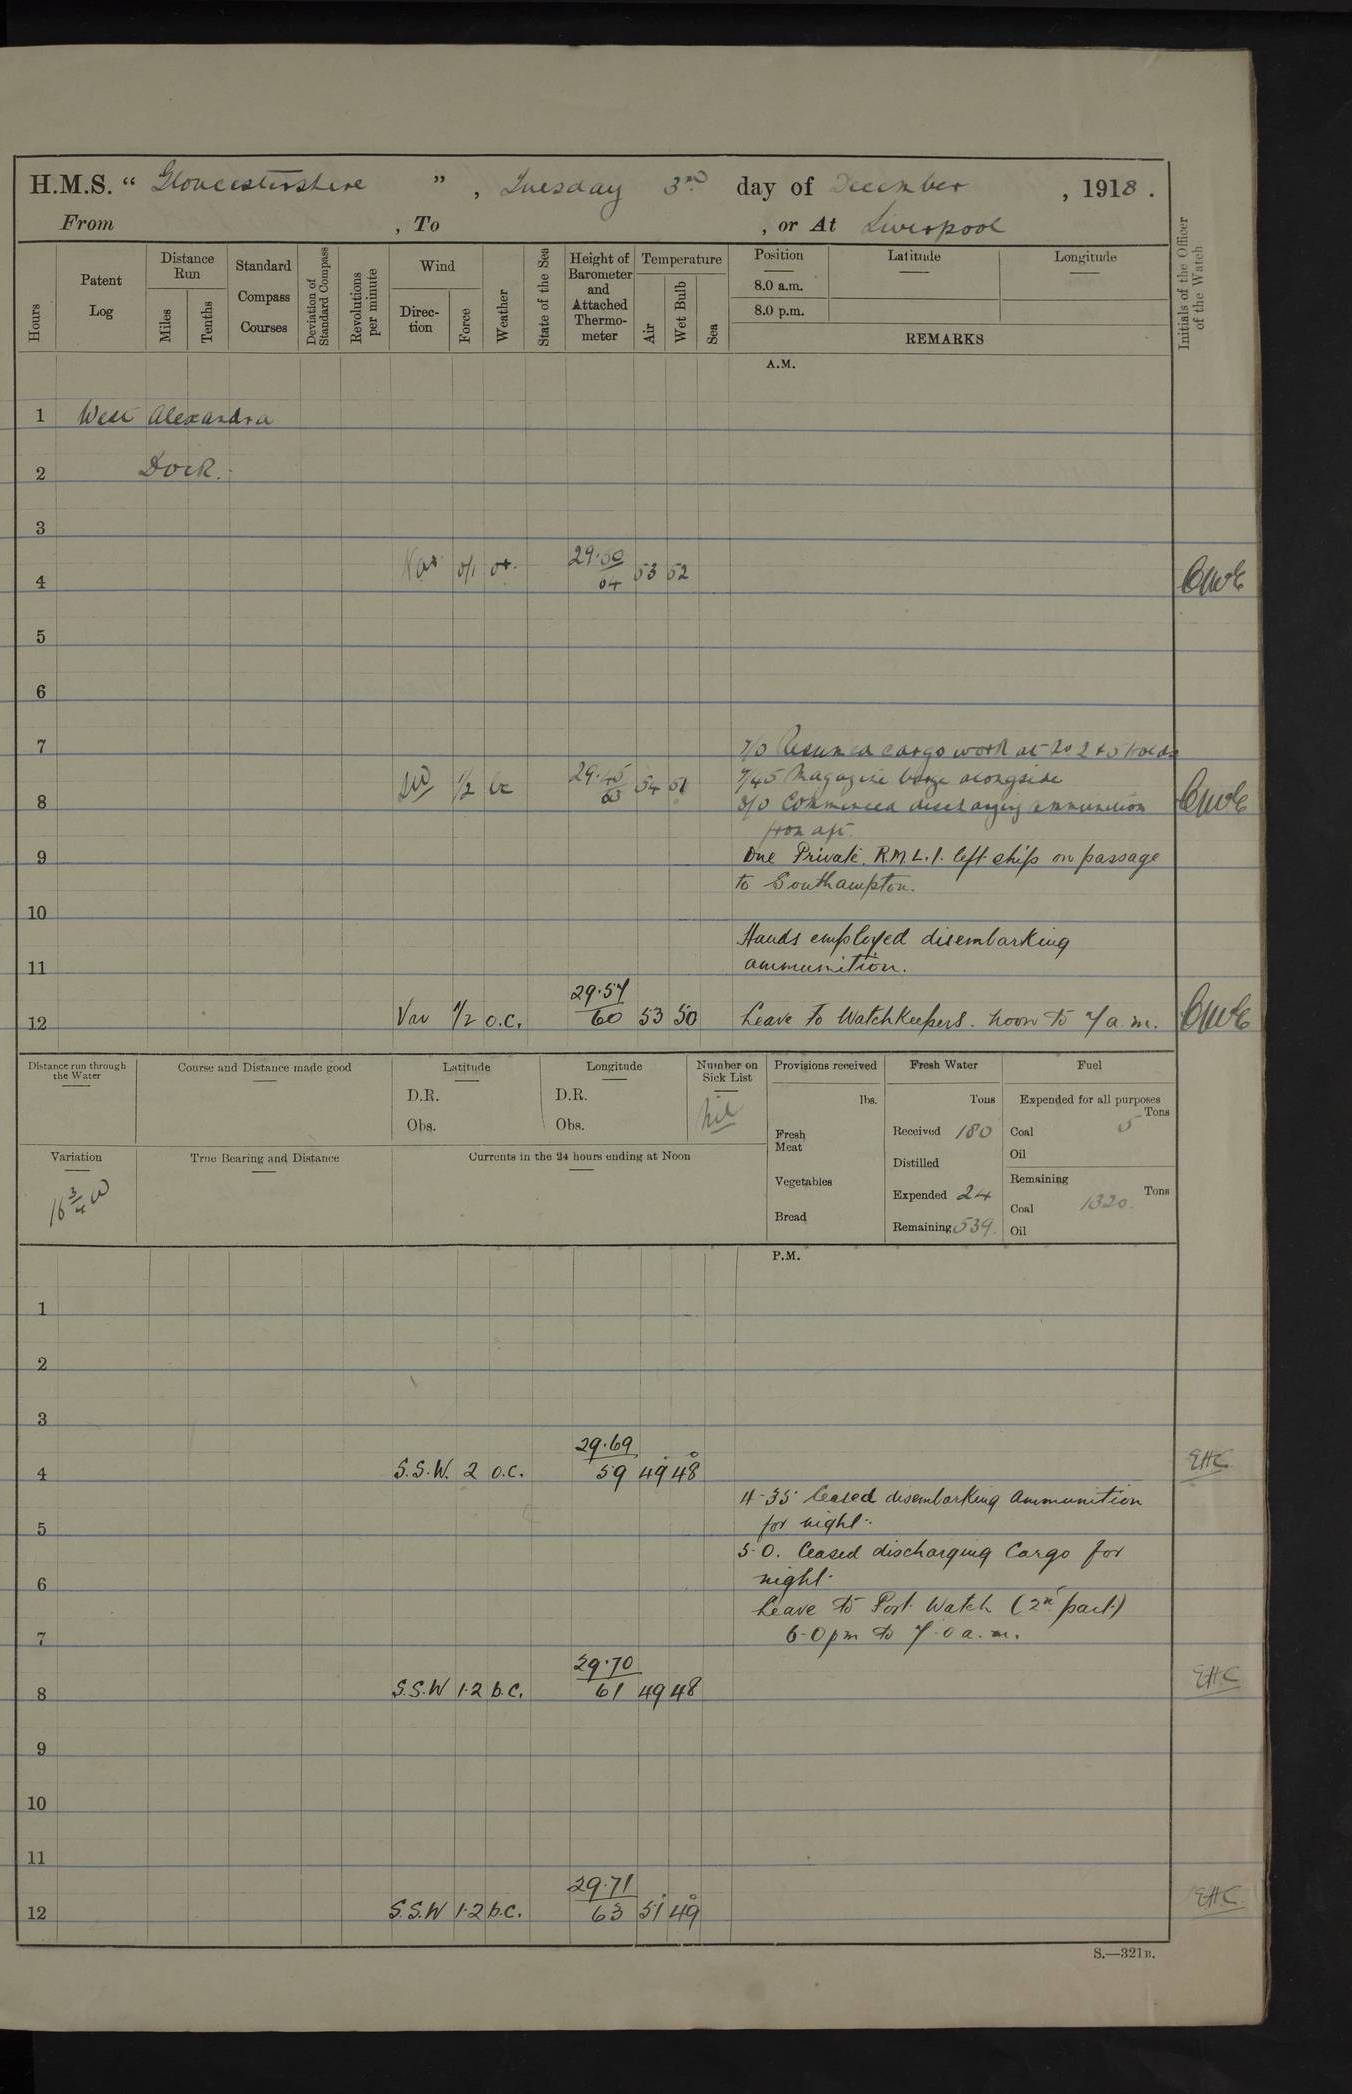 H.M.S. “ Gloucestershire ” , Tuesday 3rd day of December , 1918 .
From , To , or At Liverpool
Hours
Patent Log
Distance Run
Miles
Tenths
Standard Compass Courses
Deviation of Standard Compass
Revolutions per minute
Wind
Direction
Force
Weather
State of the Sea
Height of Barometer and Attached Thermometer
Temperature
Air
Wet Bulb
Sea
Position
8.0 a.m.
8.0 p.m.
Latitude
Longitude
REMARKS
Initials of the Officer of the Watch
A.M.
1 West Alexandra
2 Dock.
3
4 Var 0/1 29.50 04 53 52 CWE
5
6
7 7/0 Resumed cargo work at No 2 & 5 holds
7/45 Magazine barge alongside
8 SW 1/2 bc 29.45 63 54 51 8/0 Commenced discharging ammunition CWE
from aft.
9 One Private R.M.L.I. left ship on passage
to Southampton.
10
Hands employed disembarking
11 ammunition.
12 Var 1/2 o.c. 29.57 60 53 50 Leave to Watchkeepers. Noon to 7 a.m. CWE
Distance run through the Water
Course and Distance made good
Latitude
D.R.
Obs.
Longitude
D.R.
Obs.
Number on Sick List
Nil
Provisions received
lbs.
Fresh Meat
Vegetables
Bread
Fresh Water
Tons
Received 180
Distilled
Expended 24
Remaining 539
Fuel
Expended for all purposes
Tons
Coal 5
Oil
Remaining
Tons
Coal 1320.
Oil
Variation
16 3/4 W
True Bearing and Distance
Currents in the 24 hours ending at Noon
P.M.
1
2
3
4 S.S.W. 2 o.c. 29.69 59 49 48 EHC
4-35 Ceased disembarking Ammunition
5 for night.
5-0. Ceased discharging Cargo for
6 night.
Leave to Port Watch (2nd part)
7 6-0 pm to 7.0 a.m.
8 S.S.W 1.2 b.c. 29.70 61 49 48 EHC
9
10
11
12 S.S.W 1.2 b.c. 29.71 63 51 49 EHC
S.—321B.